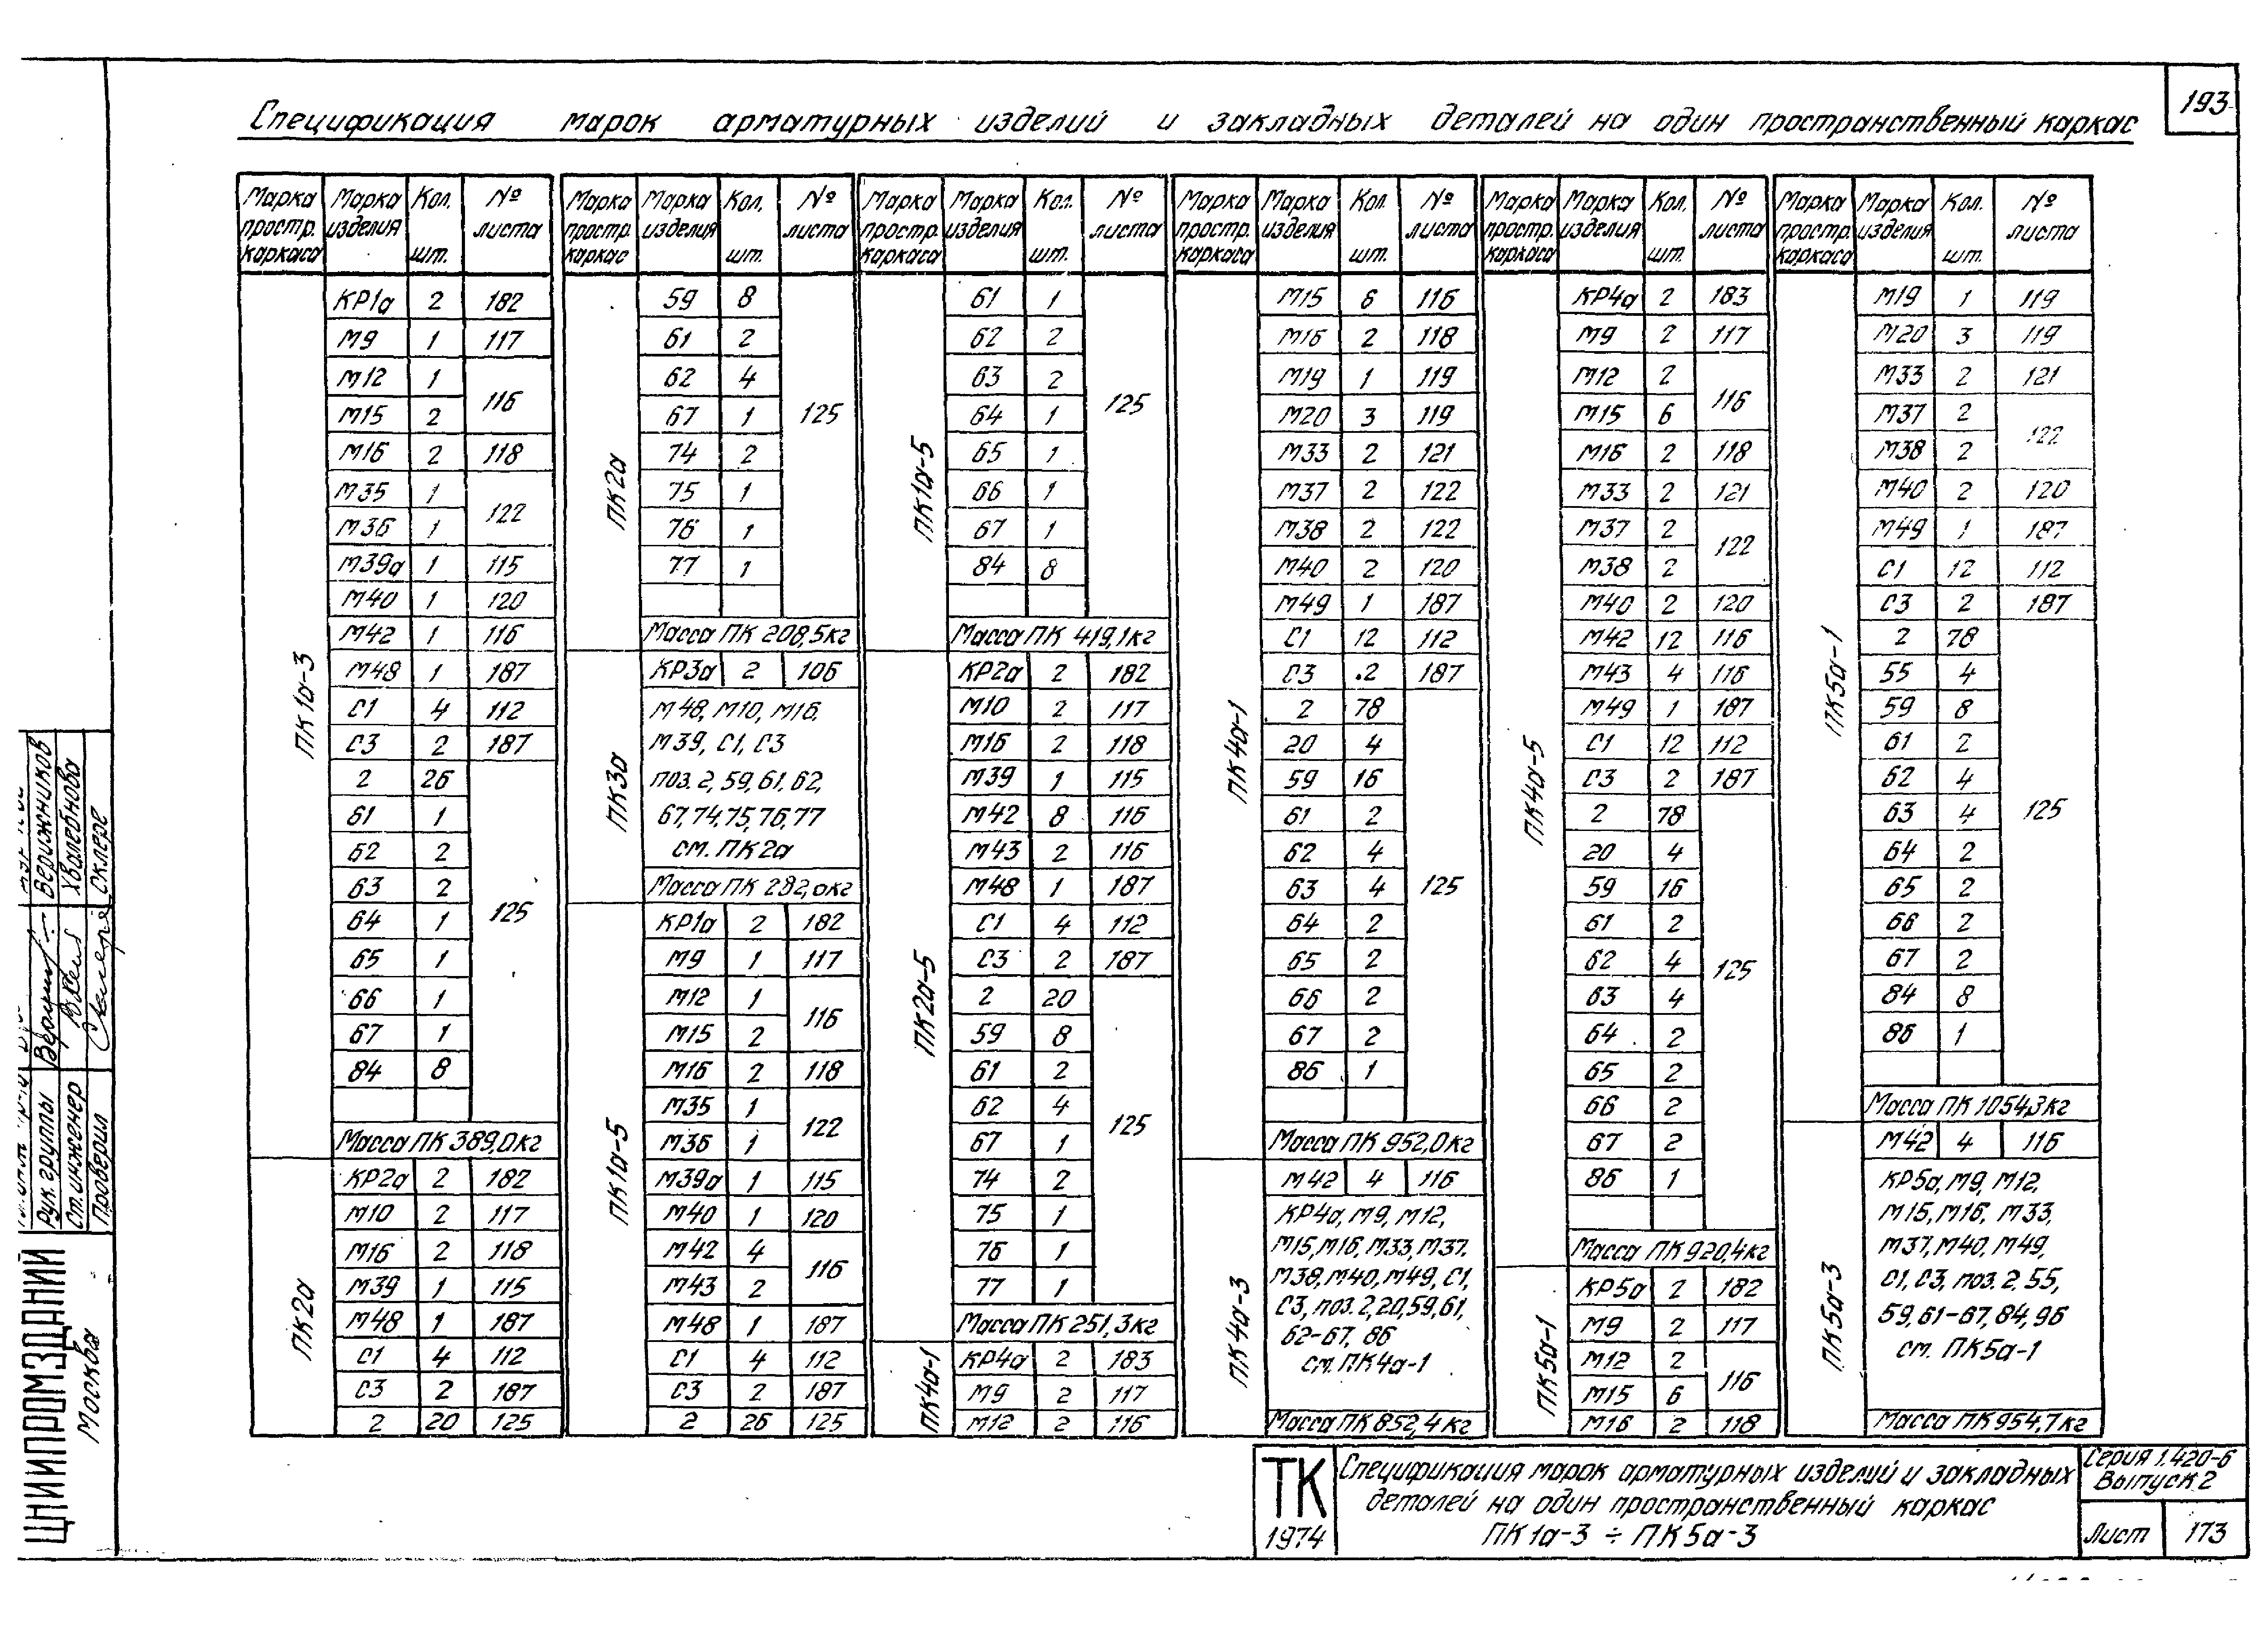 193
Спецификация марок арматурных изделий и закладных деталей на один пространственный каркас
Марка простр. каркаса Марка изделия Кол. шт. № листа
ПК1а-3
КР1а 2 182
М9 1 117
М12 1 116
М15 2
М16 2 118
М35 1 122
М36 1
М39а 1 115
М40 1 120
М42 1 116
М48 1 187
С1 4 112
С3 2 187
2 26 125
61 1
62 2
63 2
64 1
65 1
66 1
67 1
84 8
Масса ПК 389,0кг
ПК2а
КР2а 2 182
М10 2 117
М16 2 118
М39 1 115
М48 1 187
С1 4 112
С3 2 187
2 20 125
Марка простр. каркас Марка изделия Кол. шт. № листа
ПК2а
59 8 125
61 2
62 4
67 1
74 2
75 1
76 1
77 1
Масса ПК 208,5кг
ПК3а
КР3а 2 106
М48, М10, М16,
М39, С1, С3
поз. 2, 59, 61, 62,
67, 74, 75, 76, 77
см. ПК2а
Масса ПК 282,0кг
ПК1а-5
КР1а 2 182
М9 1 117
М12 1 116
М15 2
М16 2 118
М35 1 122
М36 1
М39а 1 115
М40 1 120
М42 4 116
М43 2
М48 1 187
С1 4 112
С3 2 187
2 26 125
Марка простр. каркаса Марка изделия Кол. шт. № листа
ПК1а-5
61 1 125
62 2
63 2
64 1
65 1
66 1
67 1
84 8
Масса ПК 419,1кг
ПК2а-5
КР2а 2 182
М10 2 117
М16 2 118
М39 1 115
М42 8 116
М43 2 116
М48 1 187
С1 4 112
С3 2 187
2 20 125
59 8
61 2
62 4
67 1
74 2
75 1
76 1
77 1
Масса ПК 251,3кг
ПК4а-1
КР4а 2 183
М9 2 117
М12 2 116
Марка простр. каркаса Марка изделия Кол. шт. № листа
ПК4а-1
М15 6 116
М16 2 118
М19 1 119
М20 3 119
М33 2 121
М37 2 122
М38 2 122
М40 2 120
М49 1 187
С1 12 112
С3 2 187
2 78 125
20 4
59 16
61 2
62 4
63 4
64 2
65 2
66 2
67 2
86 1
Масса ПК 952,0кг
ПК4а-3
М42 4 116
КР4а, М9, М12,
М15, М16, М33, М37.
М38, М40, М49, С1,
С3, поз. 2, 20, 59, 61,
62-67, 86
см. ПК4а-1
Масса ПК 852,4кг
Марка простр. каркаса Марка изделия Кол. шт. № листа
ПК4а-5
КР4а 2 183
М9 2 117
М12 2 116
М15 6
М16 2 118
М33 2 121
М37 2 122
М38 2
М40 2 120
М42 12 116
М43 4 116
М49 1 187
С1 12 112
С3 2 187
2 78 125
20 4
59 16
61 2
62 4
63 4
64 2
65 2
66 2
67 2
86 1
Масса ПК 920,4кг
ПК5а-1
КР5а 2 182
М9 2 117
М12 2 116
М15 6
М16 2 118
Марка простр. каркаса Марка изделия Кол. шт. № листа
ПК5а-1
М19 1 119
М20 3 119
М33 2 121
М37 2 122
М38 2
М40 2 120
М49 1 187
С1 12 112
С3 2 187
2 78 125
55 4
59 8
61 2
62 4
63 4
64 2
65 2
66 2
67 2
84 8
86 1
Масса ПК 1054,3кг
ПК5а-3
М42 4 116
КР5а, М9, М12,
М15, М16, М33,
М37, М40, М49,
С1, С3, поз. 2, 55,
59, 61-67, 84, 96
см. ПК5а-1
Масса ПК 954,7кг
Рук. группы Верижников
Ст. инженер Хвалебнова
Проверил Склере
ЦНИИПРОМЗДАНИЙ
Москва
ТК
1974
Спецификация марок арматурных изделий и закладных
деталей на один пространственный каркас
ПК1а-3 ÷ ПК5а-3
Серия 1.420-6
Выпуск 2
Лист 173